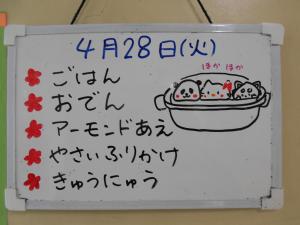 4月28日(火)
ほか ほか
ごはん
おでん
アーモンドあえ
やさいふりかけ
ぎゅうにゅう